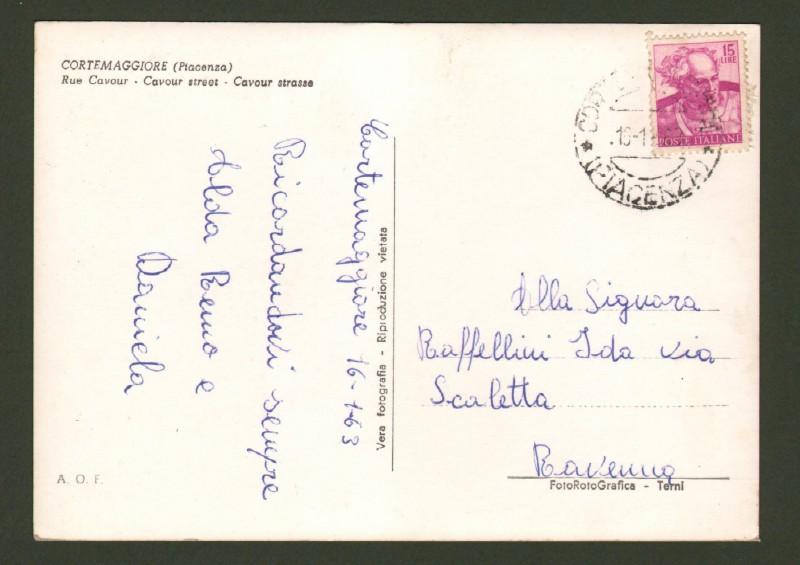 CORTEMAGGIORE (Piacenza)
Rue Cavour - Cavour street - Cavour strasse
Cortemaggiore 16-1-63
Ricordandovi sempre
Alda Remo e
Daniela
A. O. F.
Vera fotografia - Riproduzione vietata
15
LIRE
POSTE ITALIANE
(PIACENZA)
Alla Signora
Raffellini Ida via
Scaletta
Ravenna
FotoRotoGrafica - Terni